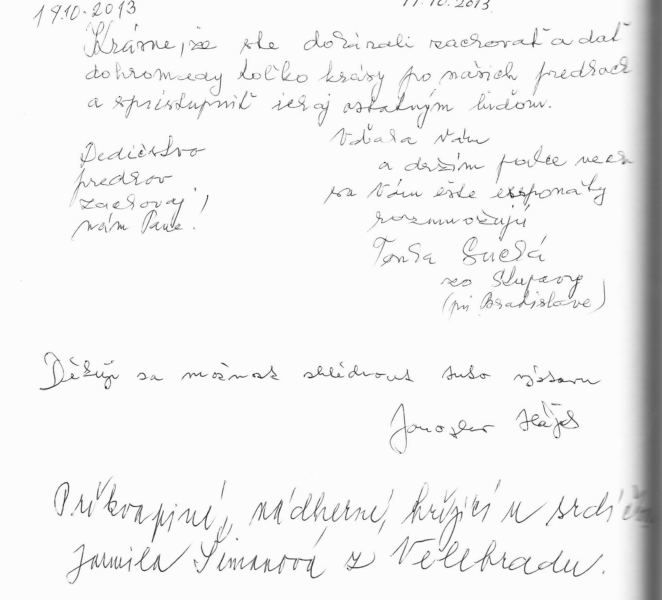 19.10.2013
19.10.2013
Krásne, že ste dokázali zachovať a dať
dohromady toľko krásy po našich predkoch
a sprístupniť ju aj ostatným ľuďom.
Dedičstvo
predkov
zachovaj
nám Pane.
Vďaka Vám
a držím palce nech
sa Vám ešte exponáty
rozmnožujú
Suchá
zo Stupavy
(pri Bratislave)
Děkuji za možnost shlédnout tuto výstavu
Jaroslav
Překvapiné, nádherné, hřijící u srdíčka
Jarmila Šimanová z Velehradu.